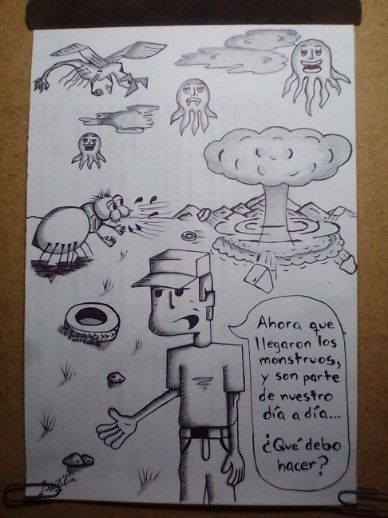 Ahora que
llegaron los
monstruos,
y son parte
de nuestro
día a día...
¿Qué debo
hacer?